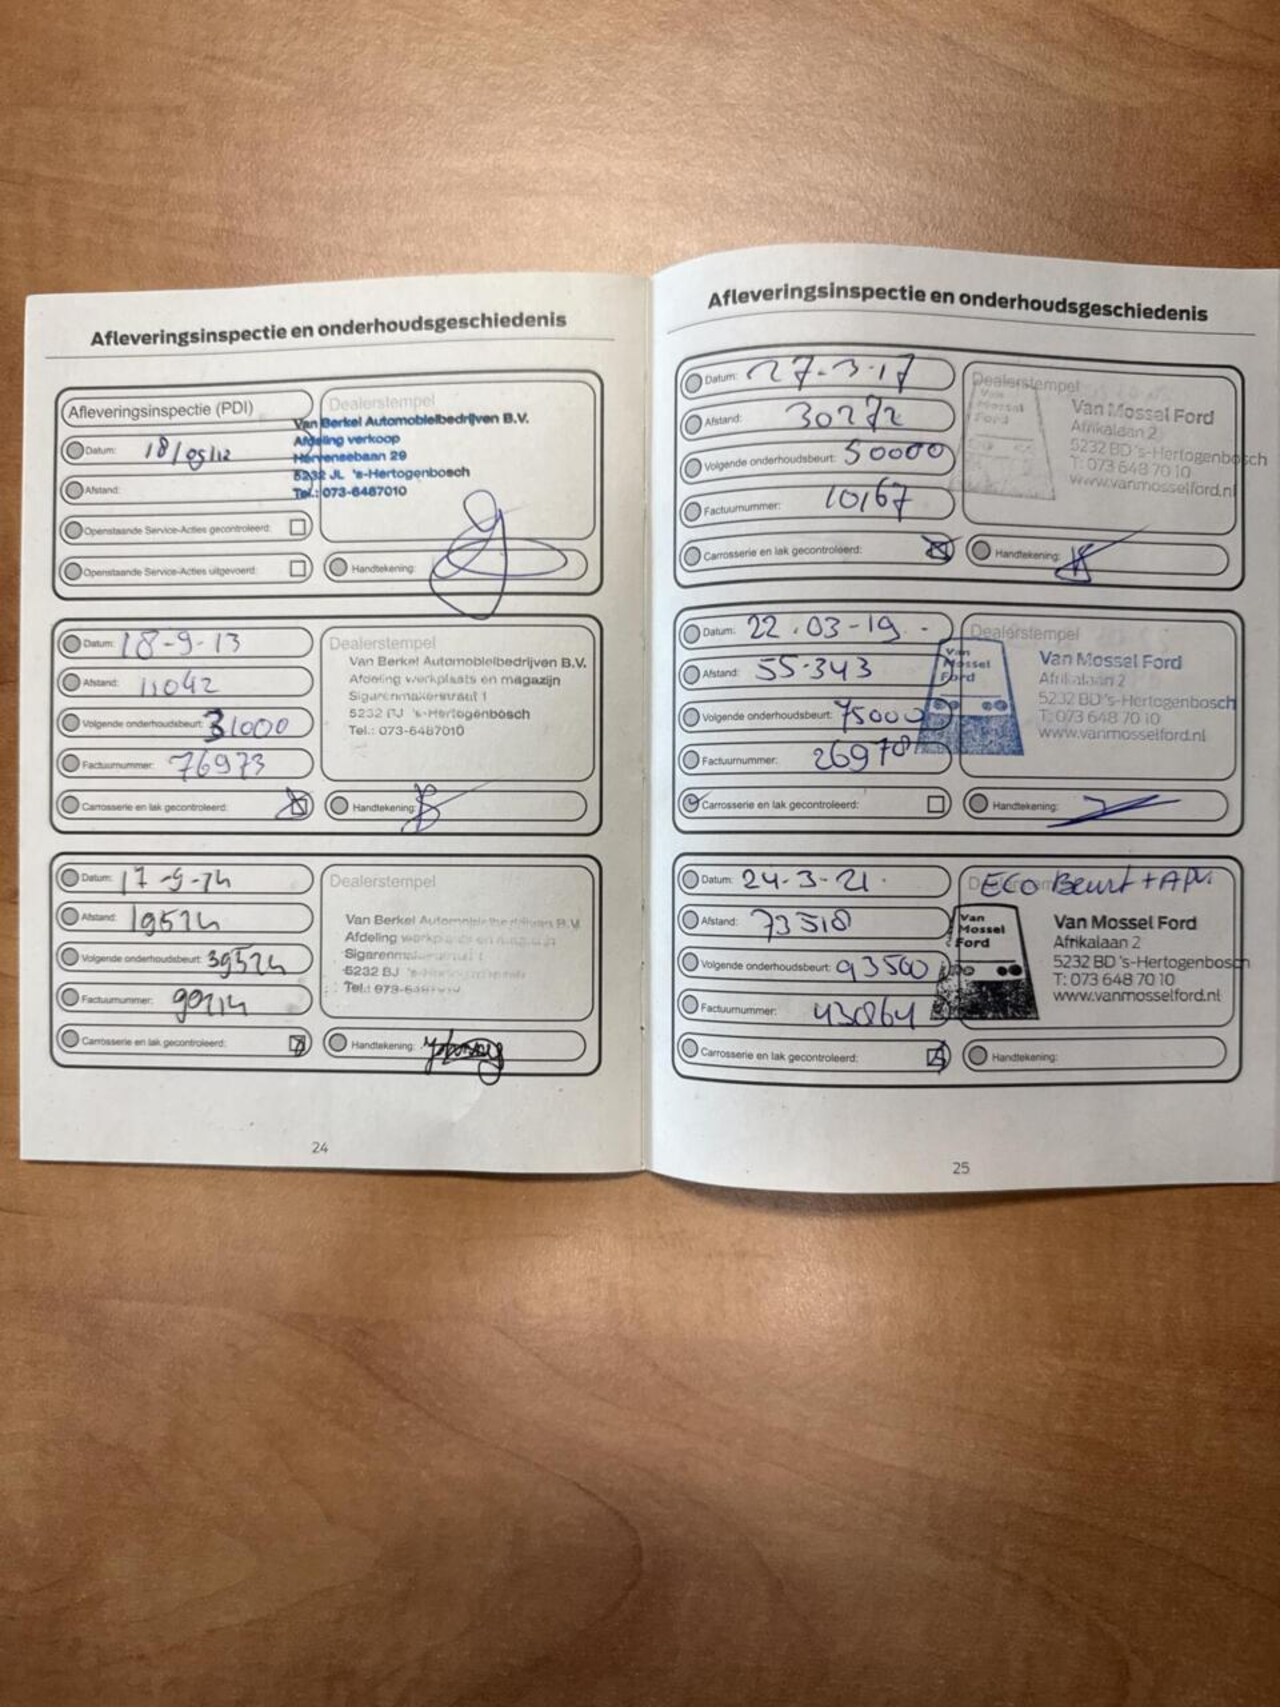 Afleveringsinspectie en onderhoudsgeschiedenis
Afleveringsinspectie (PDI)
Datum: 18/05/12
Afstand:
Openstaande Service-Acties gecontroleerd:
Openstaande Service-Acties uitgevoerd:
Dealerstempel
Van Berkel Automobielbedrijven B.V.
Afdeling verkoop
Hervensebaan 29
5232 JL 's-Hertogenbosch
Tel.: 073-6487010
Handtekening:
Datum: 18-9-13
Afstand: 11042
Volgende onderhoudsbeurt: 31000
Factuurnummer: 76973
Carrosserie en lak gecontroleerd:
Dealerstempel
Van Berkel Automobielbedrijven B.V.
Afdeling werkplaats en magazijn
Sigarenmakerstraat 1
5232 BJ 's-Hertogenbosch
Tel.: 073-6487010
Handtekening:
Datum: 17-9-14
Afstand: 19524
Volgende onderhoudsbeurt: 39524
Factuurnummer: 90214
Carrosserie en lak gecontroleerd:
Dealerstempel
Van Berkel Automobielbedrijven B.V.
Afdeling werkplaats en magazijn
5232 BJ
Tel.:
Handtekening:
24
Afleveringsinspectie en onderhoudsgeschiedenis
Datum: 27-3-17
Afstand: 30272
Volgende onderhoudsbeurt: 50000
Factuurnummer: 10167
Carrosserie en lak gecontroleerd:
Dealerstempel
Van
Mossel
Ford
Van Mossel Ford
Afrikalaan 2
5232 BD 's-Hertogenbosch
T: 073 648 70 10
www.vanmosselford.nl
Handtekening:
Datum: 22.03-19.-
Afstand: 55.343
Volgende onderhoudsbeurt: 75000
Factuurnummer: 26978
Carrosserie en lak gecontroleerd:
Dealerstempel
Van
Mossel
Ford
Van Mossel Ford
Afrikalaan 2
5232 BD 's-Hertogenbosch
T: 073 648 70 10
www.vanmosselford.nl
Handtekening:
Datum: 24-3-21.
Afstand: 73518
Volgende onderhoudsbeurt: 93500
Factuurnummer: 43864
Carrosserie en lak gecontroleerd:
ECO Beurt + APK
Van
Mossel
Ford
Van Mossel Ford
Afrikalaan 2
5232 BD 's-Hertogenbosch
T: 073 648 70 10
www.vanmosselford.nl
Handtekening:
25